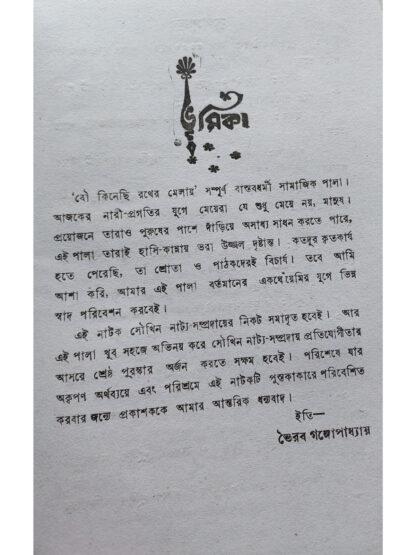 ভূমিকা
'বৌ কিনেছি রথের মেলায়' সম্পূর্ণ বাস্তবধর্মী সামাজিক পালা।
আজকের নারী-প্রগতির যুগে মেয়েরা যে শুধু মেয়ে নয়, মানুষ।
প্রয়োজনে তারাও পুরুষের পাশে দাঁড়িয়ে অসাধ্য সাধন করতে পারে,
এই পালা তারাই হাসি-কান্নায় ভরা উজ্জল দৃষ্টান্ত। কতদূর কৃতকার্য
হতে পেরেছি, তা শ্রোতা ও পাঠকদেরই বিচার্য। তবে আমি
আশা করি, আমার এই পালা বর্তমানের একঘেয়েমির যুগে ভিন্ন
স্বাদ পরিবেশন করবেই।
এই নাটক সৌখিন নাট্য-সম্প্রদায়ের নিকট সমাদৃত হবেই। আর
এই পালা খুব সহজে অভিনয় করে সৌখিন নাট্য-সম্প্রদায় প্রতিযোগীতার
আসরে শ্রেষ্ঠ পুরস্কার অর্জন করতে সক্ষম হবেই। পরিশেষে যার
অকৃপণ অর্থব্যয়ে এবং পরিশ্রমে এই নাটকটি পুস্তকাকারে পরিবেশিত
করবার জন্যে প্রকাশককে আমার আন্তরিক ধন্যবাদ।
ইতি—
ভৈরব গঙ্গোপাধ্যায়